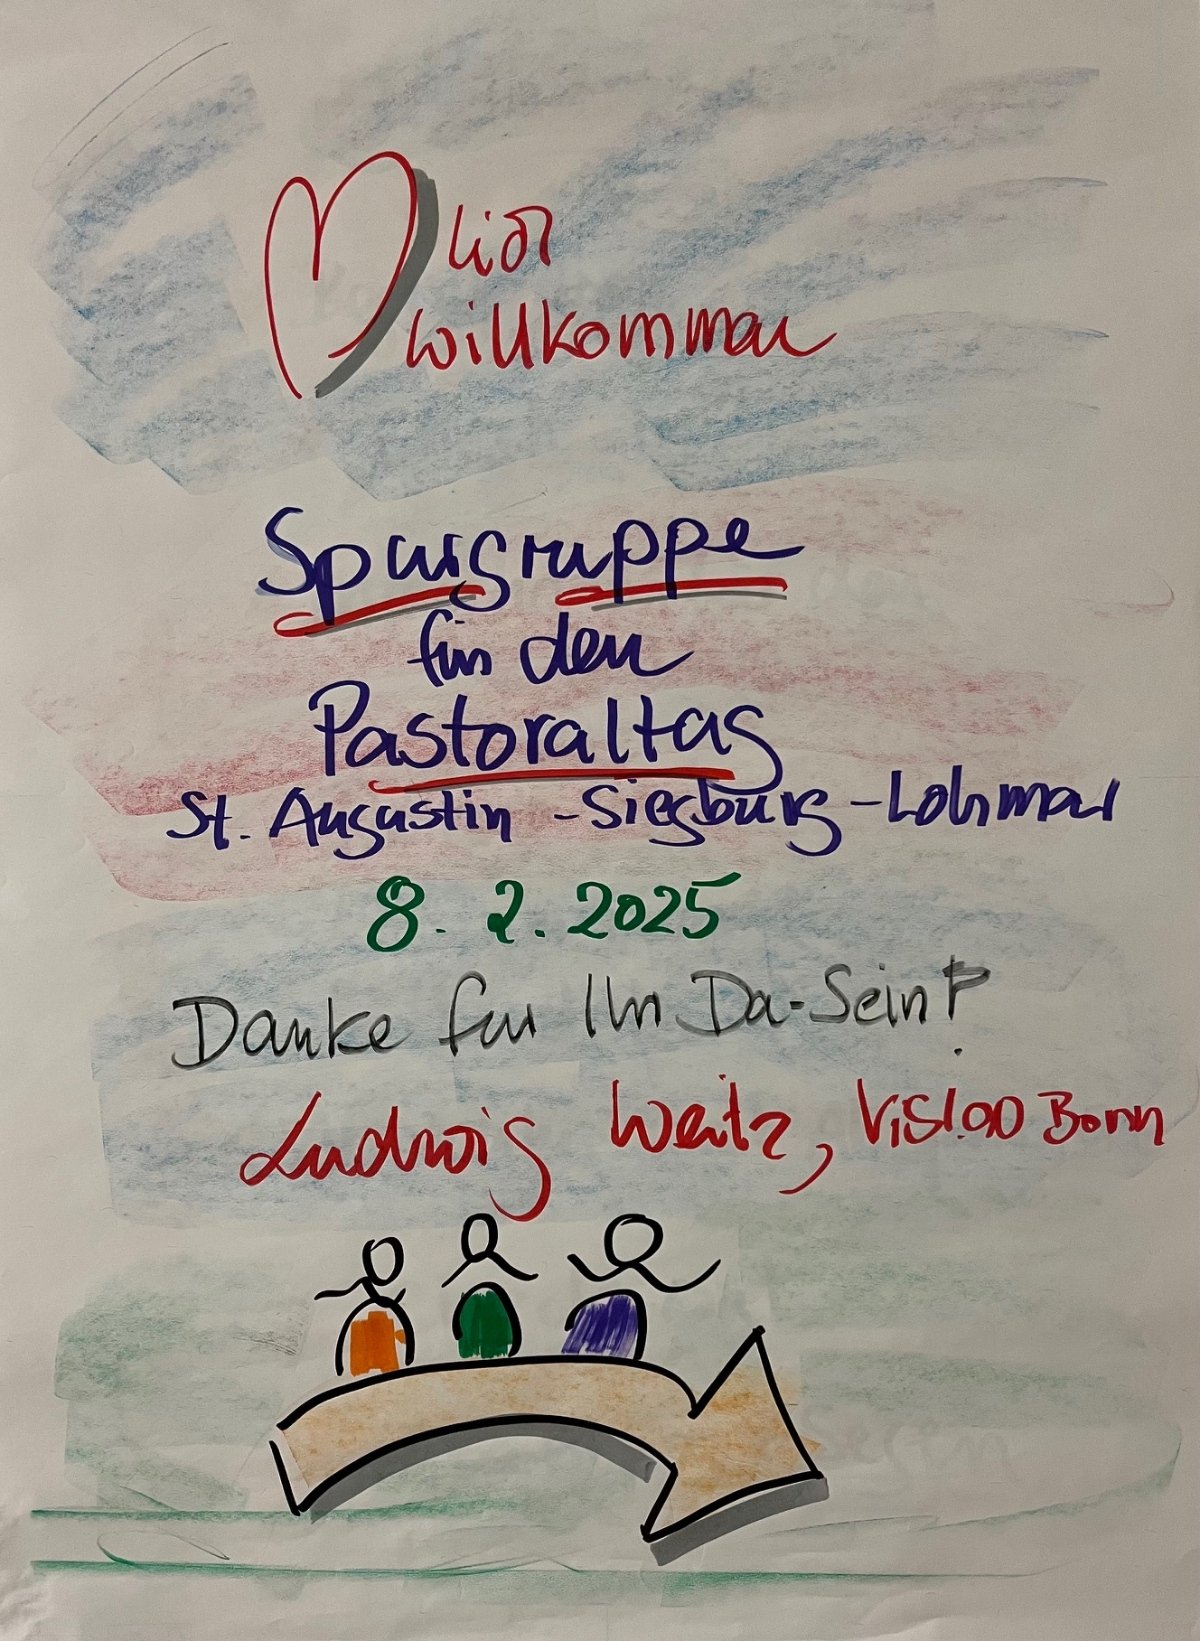 lich
willkommen
Spurgruppe
für den
Pastoraltag
St. Augustin - Siegburg - Lohmar
8. 2. 2025
Danke für Ihr Da-Sein!
Ludwig Weitz, Bonn